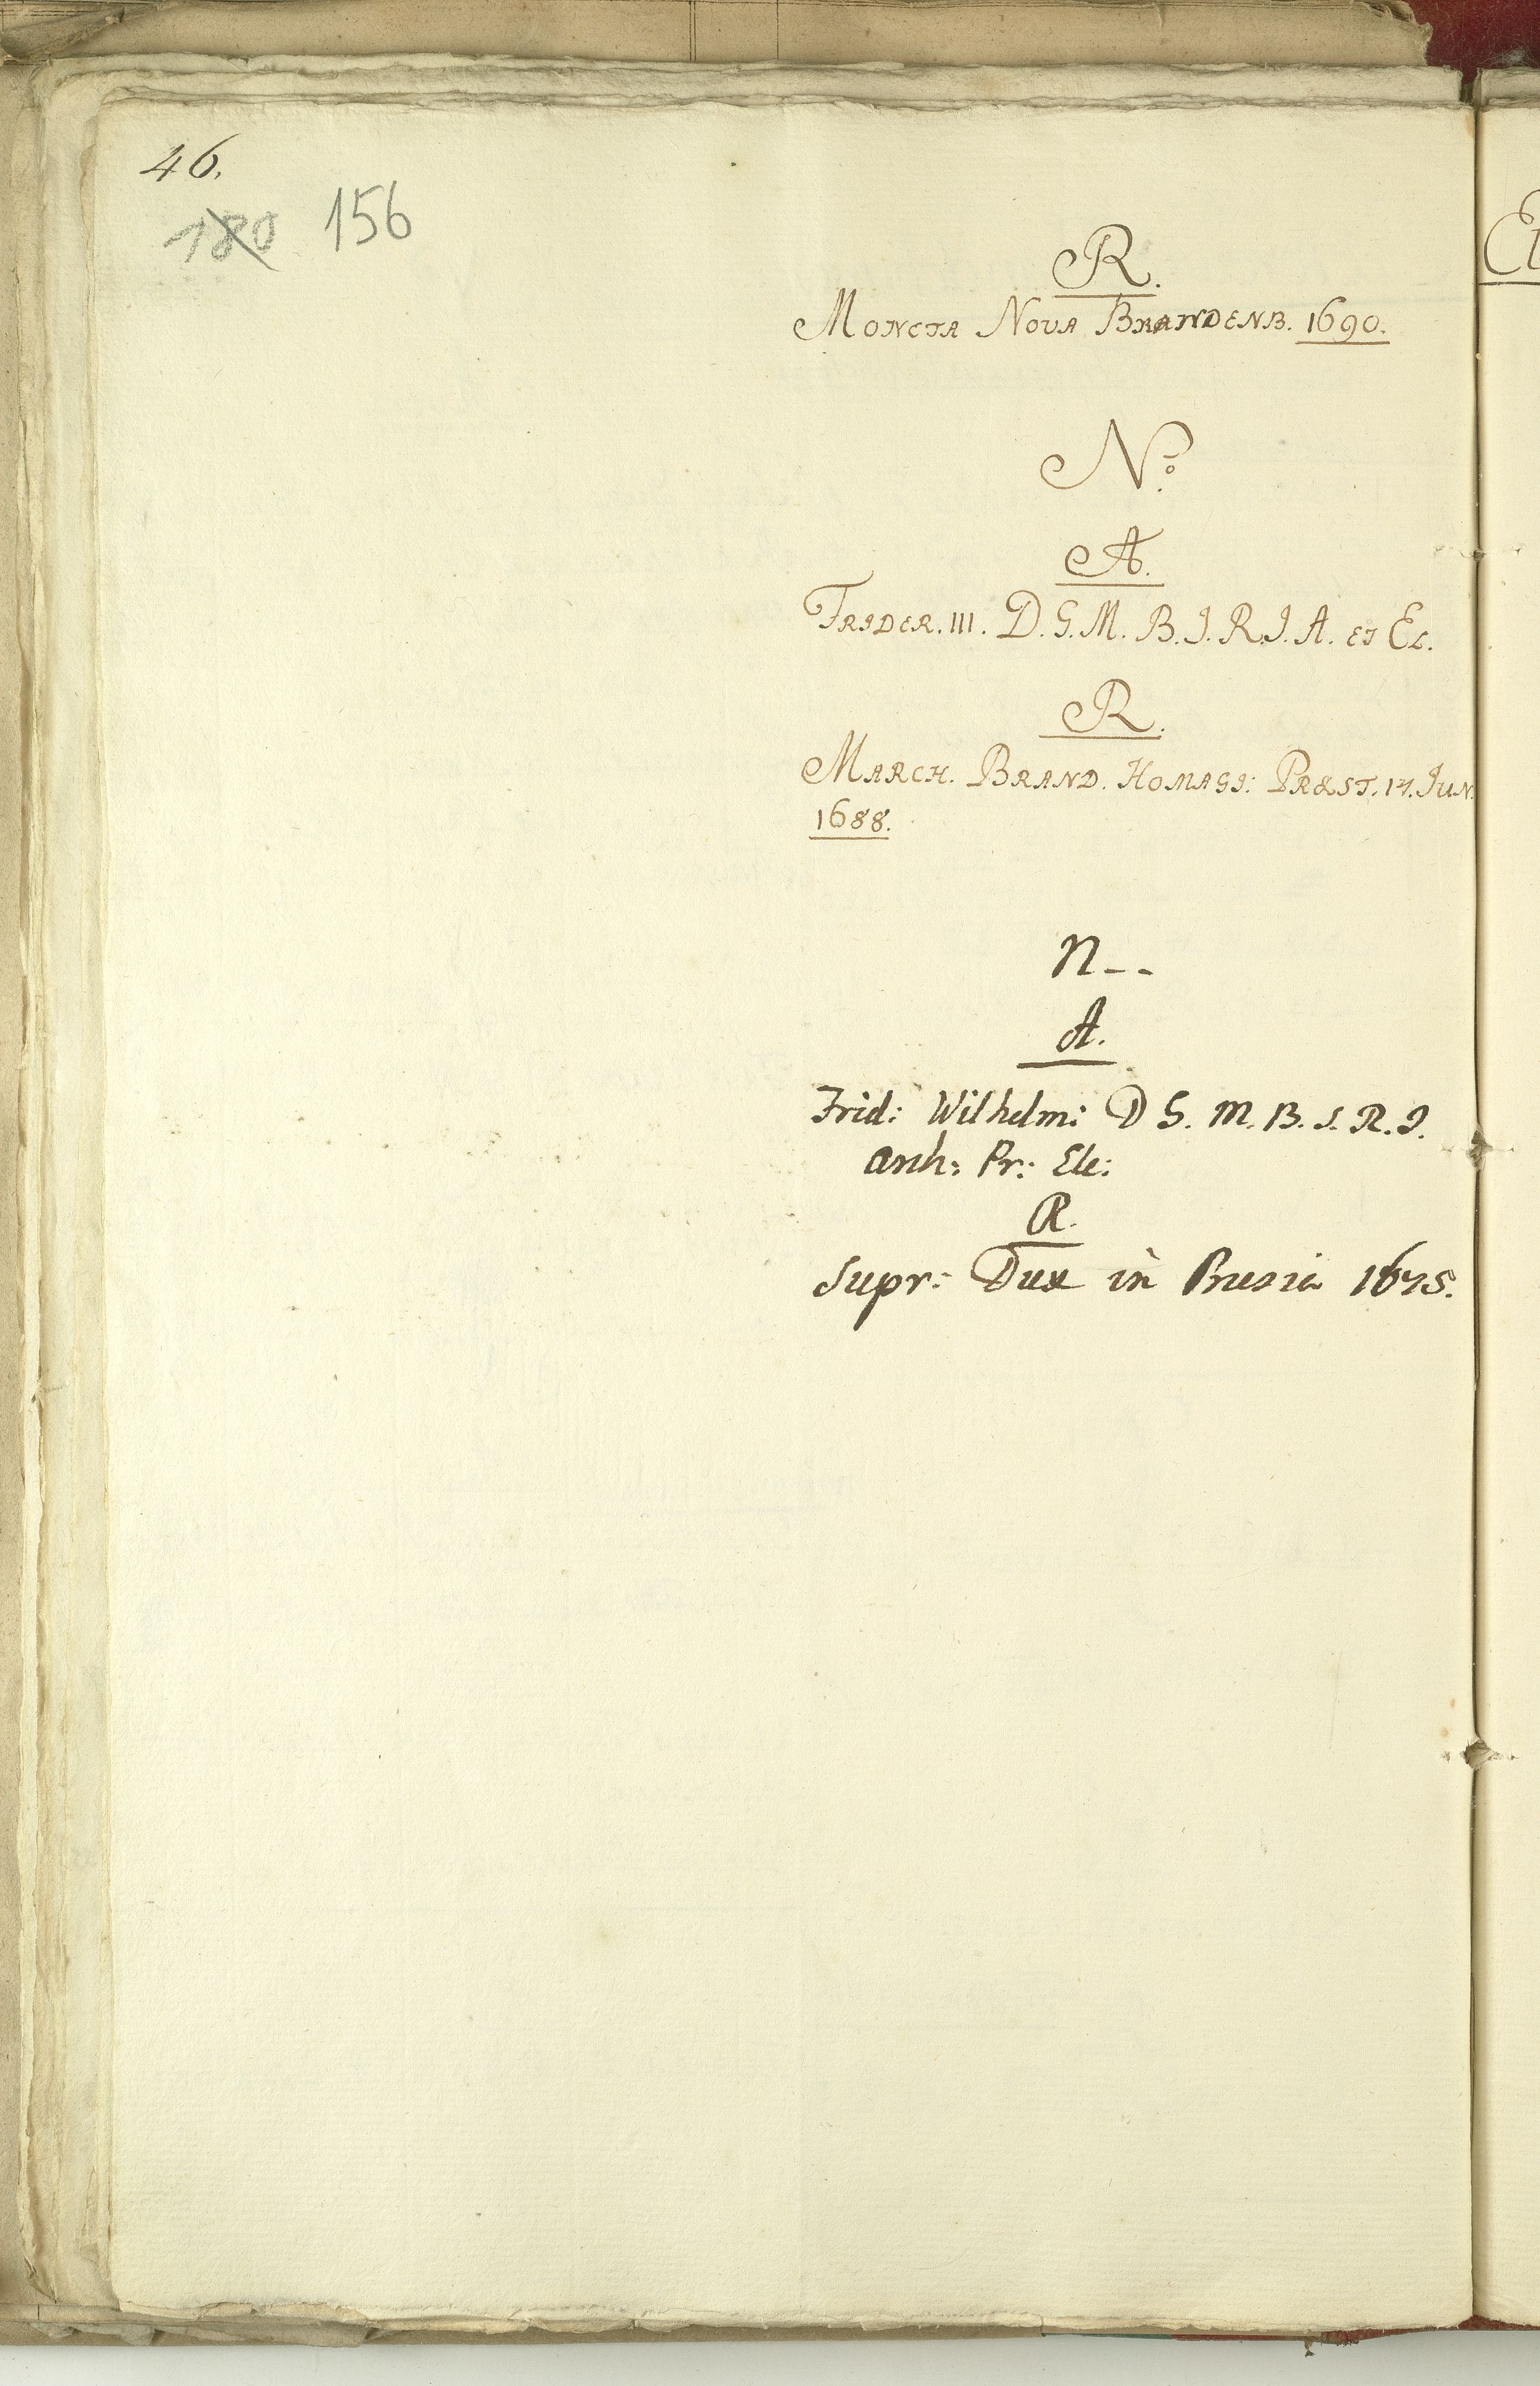 46.
180 156
R.
Moneta Nova Brandenb. 1690.
No
A.
Frider. III. D. G. M. B. S. R. I. A. et El.
R.
March. Brand. Homagi: Præst. 14. Jun.
1688.
N--
A.
Frid: Wilhelm: D G. M. B. S. R. I.
Arch: Pr: Ele:
R.
Supr: Dux in Prusia 1675.